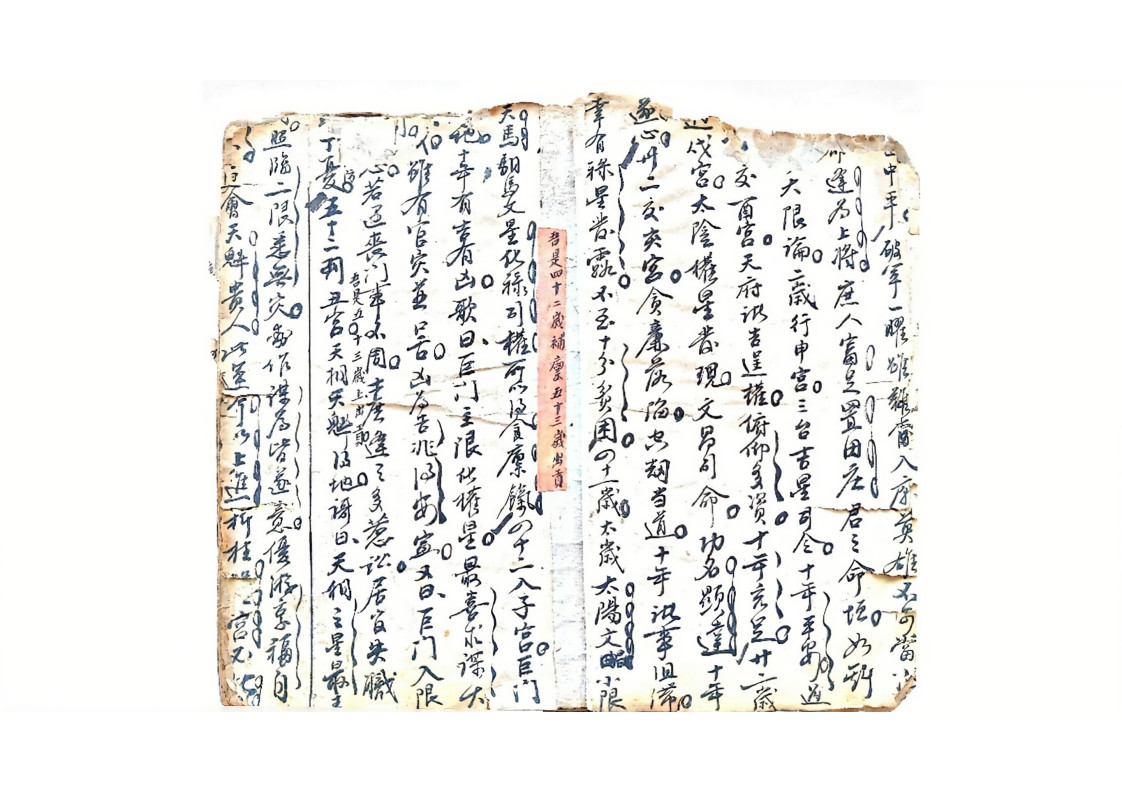 中平破軍一曜雄難當入廟英雄不可當
逢為上將庶人富足置田庄君之命垣如斯
大限論二歲行申宮三台吉星司令十年平安過
交酉宮天府諸吉逞權俯仰多資十年充足廿二歲
戌宮太陰權星發現文昌司命功名顯達十年
遂心卅二交亥宮貪廉落陷空刼当道十年諸事阻滯
幸有祿星發露不至十分貧困四十一歲太歲太陽文昌小限
吾是四十二歲補廩五十三歲出貢
天馬馹馬文星化祿司權所以得食廩餼四十二入子宮巨門
他幸有吉有凶歌曰巨門主限化權星最喜求謀大
雖有官灾並口舌凶為吉兆得安寧又曰巨門入限
心若逢喪門事不周士庶逢之多惹訟居官失職
丁憂五十二判丑宮天相天魁得地謌曰天相之星最主
吾是五十三歲上出貢
照臨二限悉無灾動作謀為皆遂意優游享福自
會天魁貴人此運所以上進折桂宮